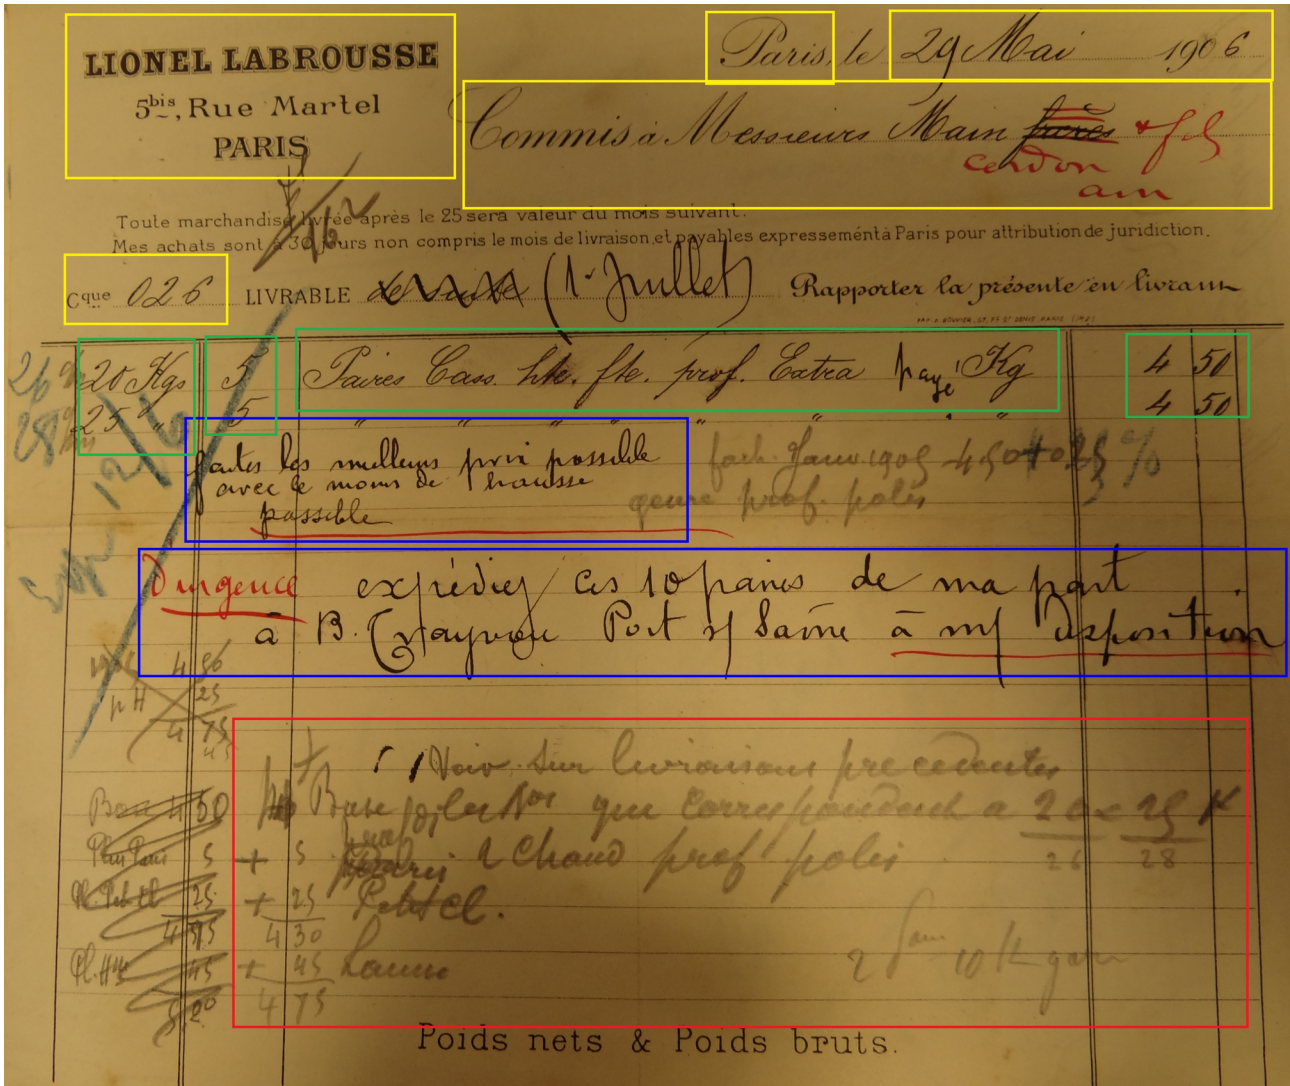 LIONEL LABROUSSE
5bis, Rue Martel
PARIS
Paris, le 29 Mai 1906
Commis à Messieurs Main frères & fils
cerdon
ain
Toute marchandise livrée après le 25 sera valeur du mois suivant.
Mes achats sont à 30 jours non compris le mois de livraison, et payables expressément à Paris pour attribution de juridiction.
Cque 026 LIVRABLE de suite (1er Juillet) Rapporter la présente en livrant
26 20 Kgs 5 Paires Cass. hte. fte. prof. Extra payé Kg 4 50
28 25 " 5 " " " " " " " 4 50
12/6
faites les meilleurs prix possible
avec le moins de hausse
possible
fact. Janv 1905 450 + 025 %
genre prof. polis
D'urgence expédiez ces 10 paires de ma part
à B. Port s/ Saône à m/ disposition
4 50
25
4 75
Voir sur livraisons précédentes
Base 4 50 Base que correspondent a 20 & 25 K
26 28
Plus 5 + 5 2 Chaud prof polis
25 + 25 Petit cl.
4 30
45 + 45
5.20 4 75
2 10 K
Poids nets & Poids bruts.